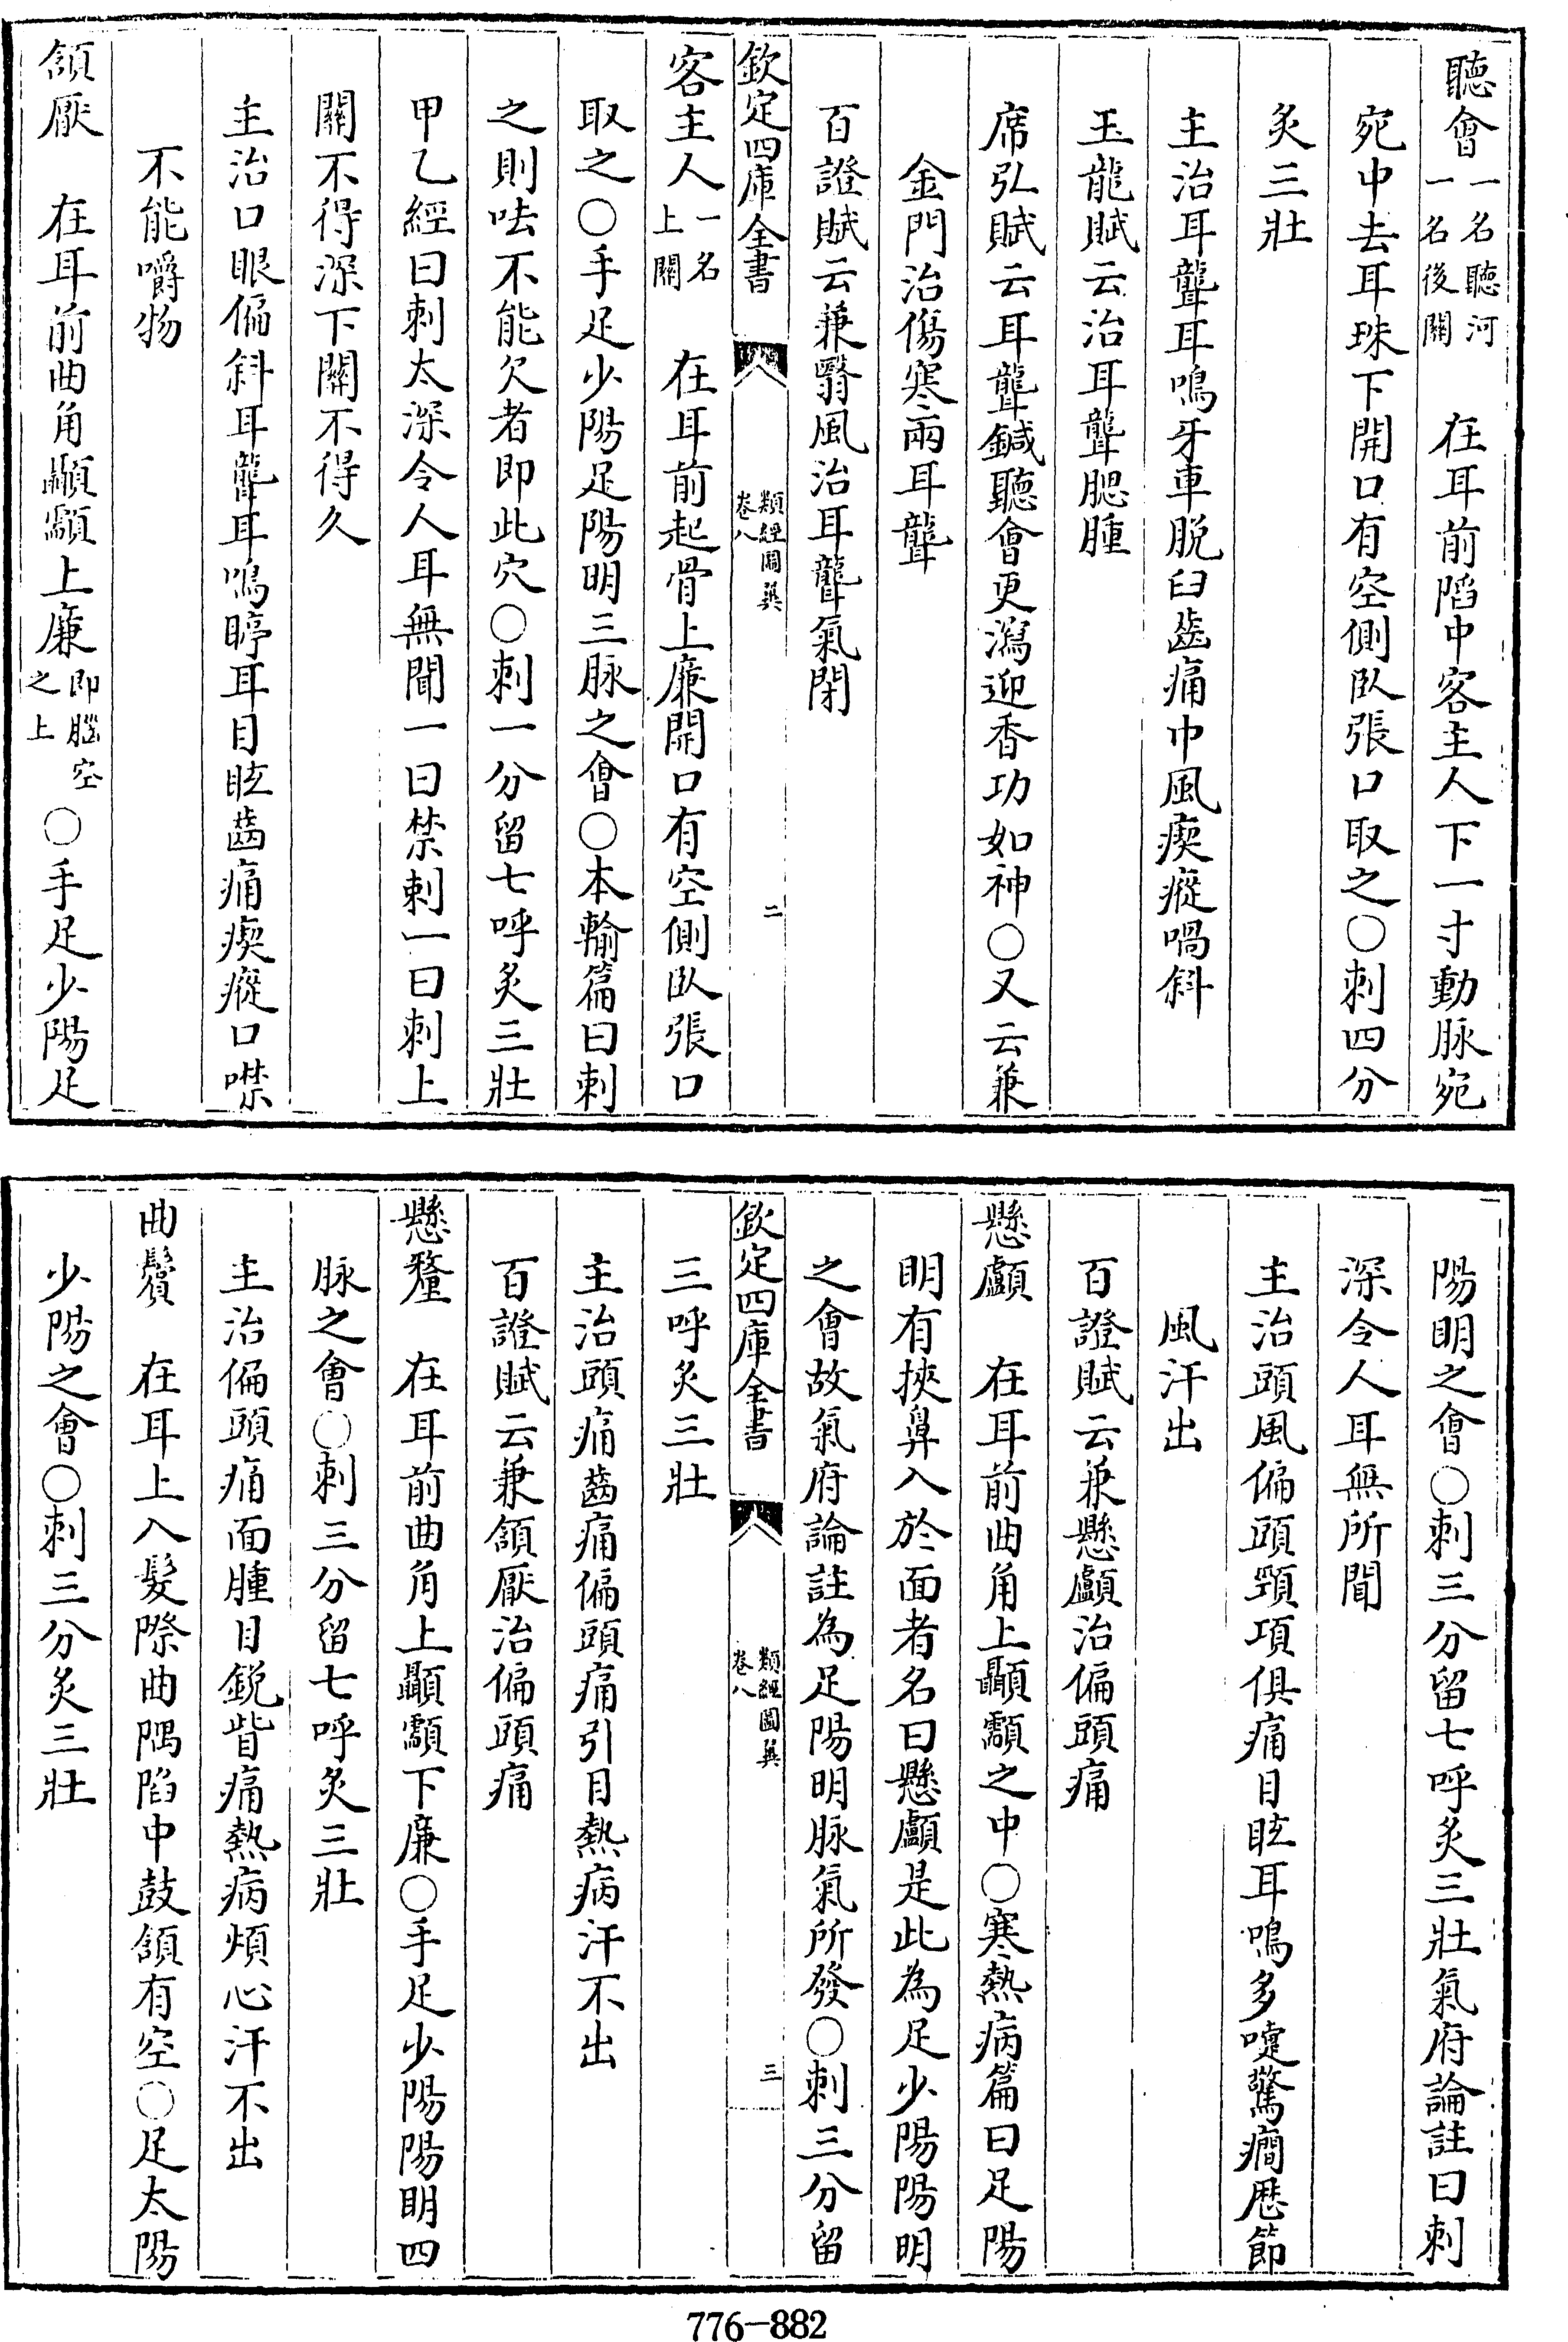 聽會一名聽河一名後關　在耳前陷中客主人下一寸動脉宛
宛中去耳珠下開口有空側臥張口取之〇刺四分
炙三壯
主治耳聾耳鳴牙車脫臼齒痛中風瘈瘲喎斜
玉龍賦云治耳聾腮腫
席弘賦云耳聾鍼聽會更瀉迎香功如神〇又云兼
金門治傷寒兩耳聾
百證賦云兼翳風治耳聾氣閉
欽定四庫全書　類經圖翼卷八　二
客主人一名上關　在耳前起骨上廉開口有空側臥張口
取之〇手足少陽足陽明三脉之會〇本輸篇曰刺
之則呿不能欠者即此穴〇刺一分留七呼炙三壯
甲乙經曰刺太深令人耳無聞一曰禁刺一曰刺上
關不得深下關不得久
主治口眼偏斜耳聾耳鳴聤耳目眩齒痛瘈瘲口噤
不能嚼物
頷厭　在耳前曲角顳顬上廉即腦空之上〇手足少陽足
陽明之會〇刺三分留七呼炙三壯氣府論註曰刺
深令人耳無所聞
主治頭風偏頭頸項俱痛目眩耳鳴多嚏驚癇歷節
風汗出
百證賦云兼懸顱治偏頭痛
懸顱　在耳前曲角上顳顬之中〇寒熱病篇曰足陽
明有挾鼻入於面者名曰懸顱是此為足少陽陽明
之會故氣府論註為足陽明脉氣所發〇刺三分留
欽定四庫全書　類經圖翼卷八　三
三呼炙三壯
主治頭痛齒痛偏頭痛引目熱病汗不出
百證賦云兼頷厭治偏頭痛
懸釐　在耳前曲角上顳顬下廉〇手足少陽陽明四
脉之會〇刺三分留七呼炙三壯
主治偏頭痛面腫目銳眥痛熱病煩心汗不出
曲鬢　在耳上入髮際曲隅陷中鼓頷有空〇足太陽
少陽之會〇刺三分炙三壯
776-882